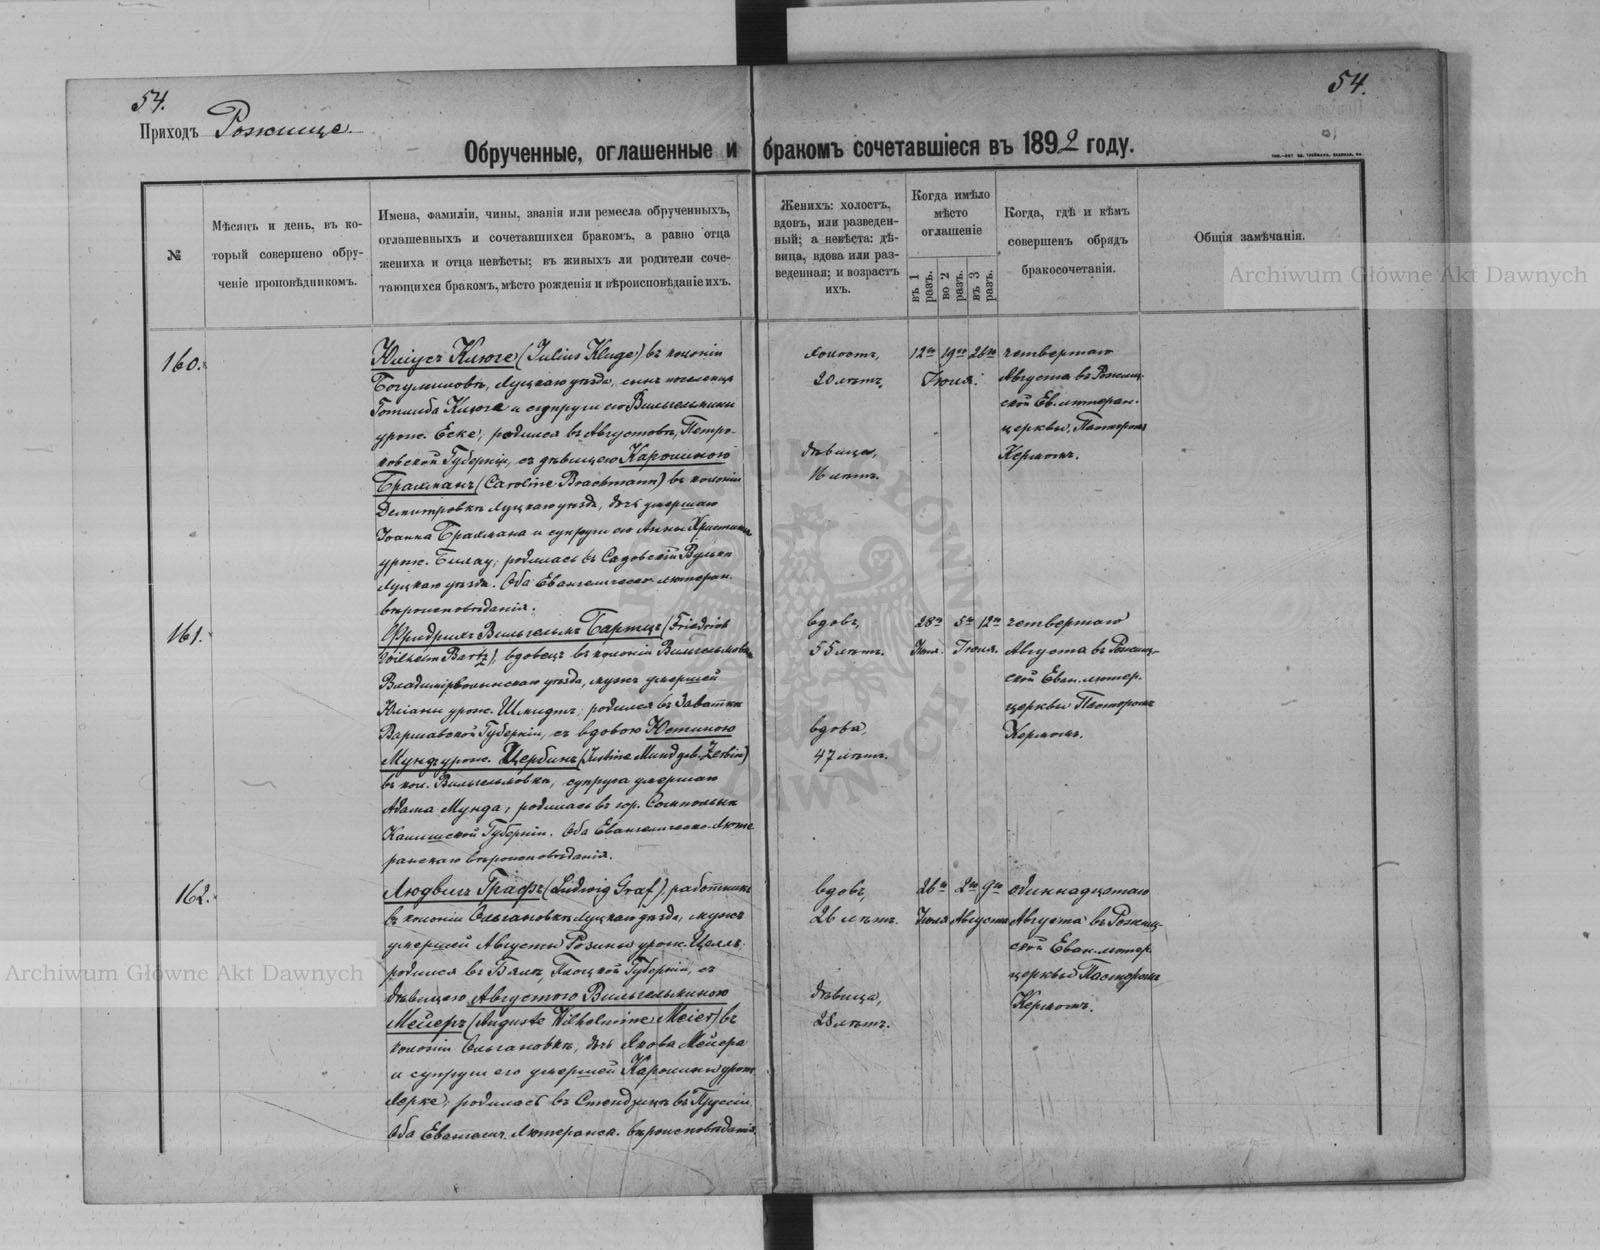 54.
54.
Приходъ Рожище.
Обрученные, оглашенные и бракомъ сочетавшіеся въ 1892 году.
№
Мѣсяцъ и день, въ ко-
торый совершено обру-
ченіе проповѣдникомъ.
Имена, фамиліи, чины, званія или ремесла обрученныхъ,
оглашенныхъ и сочетавшихся бракомъ, а равно отца
жениха и отца невѣсты; въ живыхъ ли родители соче-
тающихся бракомъ, мѣсто рожденія и вѣроисповѣданіе ихъ.
Женихъ: холостъ,
вдовъ, или разведен-
ный; а невѣста: дѣ-
вица, вдова или раз-
веденная; и возрастъ
ихъ.
Когда имѣло
мѣсто
оглашеніе
въ 1 разъ.
во 2 разъ.
въ 3 разъ.
Когда, гдѣ и кѣмъ
совершенъ обрядъ
бракосочетанія.
Общія замѣчанія.
160.
Юліусъ Клюге (Julius Kluge) въ колоніи
Богумиловкѣ, Луцкаго уѣзда, сынъ поселенца
Готлиба Клюге и супруги его Вильгельмины
урож. Еске; родился въ Августовѣ, Петро-
ковской Губерніи, съ дѣвицею Каролиною
Брахманъ (Caroline Brachmann) въ колоніи
Дементровкѣ Луцкаго уѣзда, дочь умершаго
Іоанна Брахмана и супруги его Анны Христины
урож. родилась въ Садовскій Вулькѣ
Луцкаго уѣзда. Оба Евангелическо-лютеран.
вѣроисповѣданія.
холостъ,
20 лѣтъ.
дѣвица,
16 лѣтъ.
12го 19го 26го
Іюля.
четвертаго
Августа въ Рожищ-
ской Ев. лютеран.
церквы, Пасторомъ
Кермомъ.
161.
Фридрихъ Вильгельмъ Бартцъ (Friedrich
Wilhelm Bartz), вдовецъ въ колоніи Вильгельмовкѣ
Владимірволынскаго уѣзда, мужъ умершей
Юліаны урож. Шмидтъ; родился въ Заваткѣ
Варшавской Губерніи, съ вдовою Юстиною
Мундъ урож. Цербинъ (Justine Mund geb. Zerbin)
въ кол. Вильгельмовкѣ, супруга умершаго
Адама Мунда, родилась въ гор. Сомпольнѣ
Калишской Губерніи. Оба Евангелическо-Люте-
ранскаго вѣроисповѣданія.
вдовъ,
55 лѣтъ.
вдова,
47 лѣтъ.
28го 5го 12го
Іюня. Іюля.
четвертаго
Августа въ Рожищ-
ской Еван. лютер.
церквы Пасторомъ
Кермомъ.
162.
Людвигъ Графъ (Ludwig Graf), работникъ
въ колоніи Ольгановкѣ Луцкаго уѣзда, мужъ
умершей Августы Розины урож. Целль
родился въ Бялѣ, Плоцкой Губерніи, съ
дѣвицею Августою Вильгельминою
Мейеръ (Auguste Wilhelmine Meier) въ
колоніи Ольгановкѣ, дочь Якова Мейера
и супруги его умершей Каролины урож.
Лерке; родилась въ Стендзицѣ въ Пруссіи.
Оба Евангелич. Лютеранск. вѣроисповѣданія.
вдовъ,
26 лѣтъ.
дѣвица,
28 лѣтъ.
26го 2го 9го
Іюля Августа
одиннадцатаго
Августа въ Рожищ-
ской Еван. лютер.
церквы Пасторомъ
Кермомъ.
Archiwum Główne Akt Dawnych
Archiwum Główne Akt Dawnych